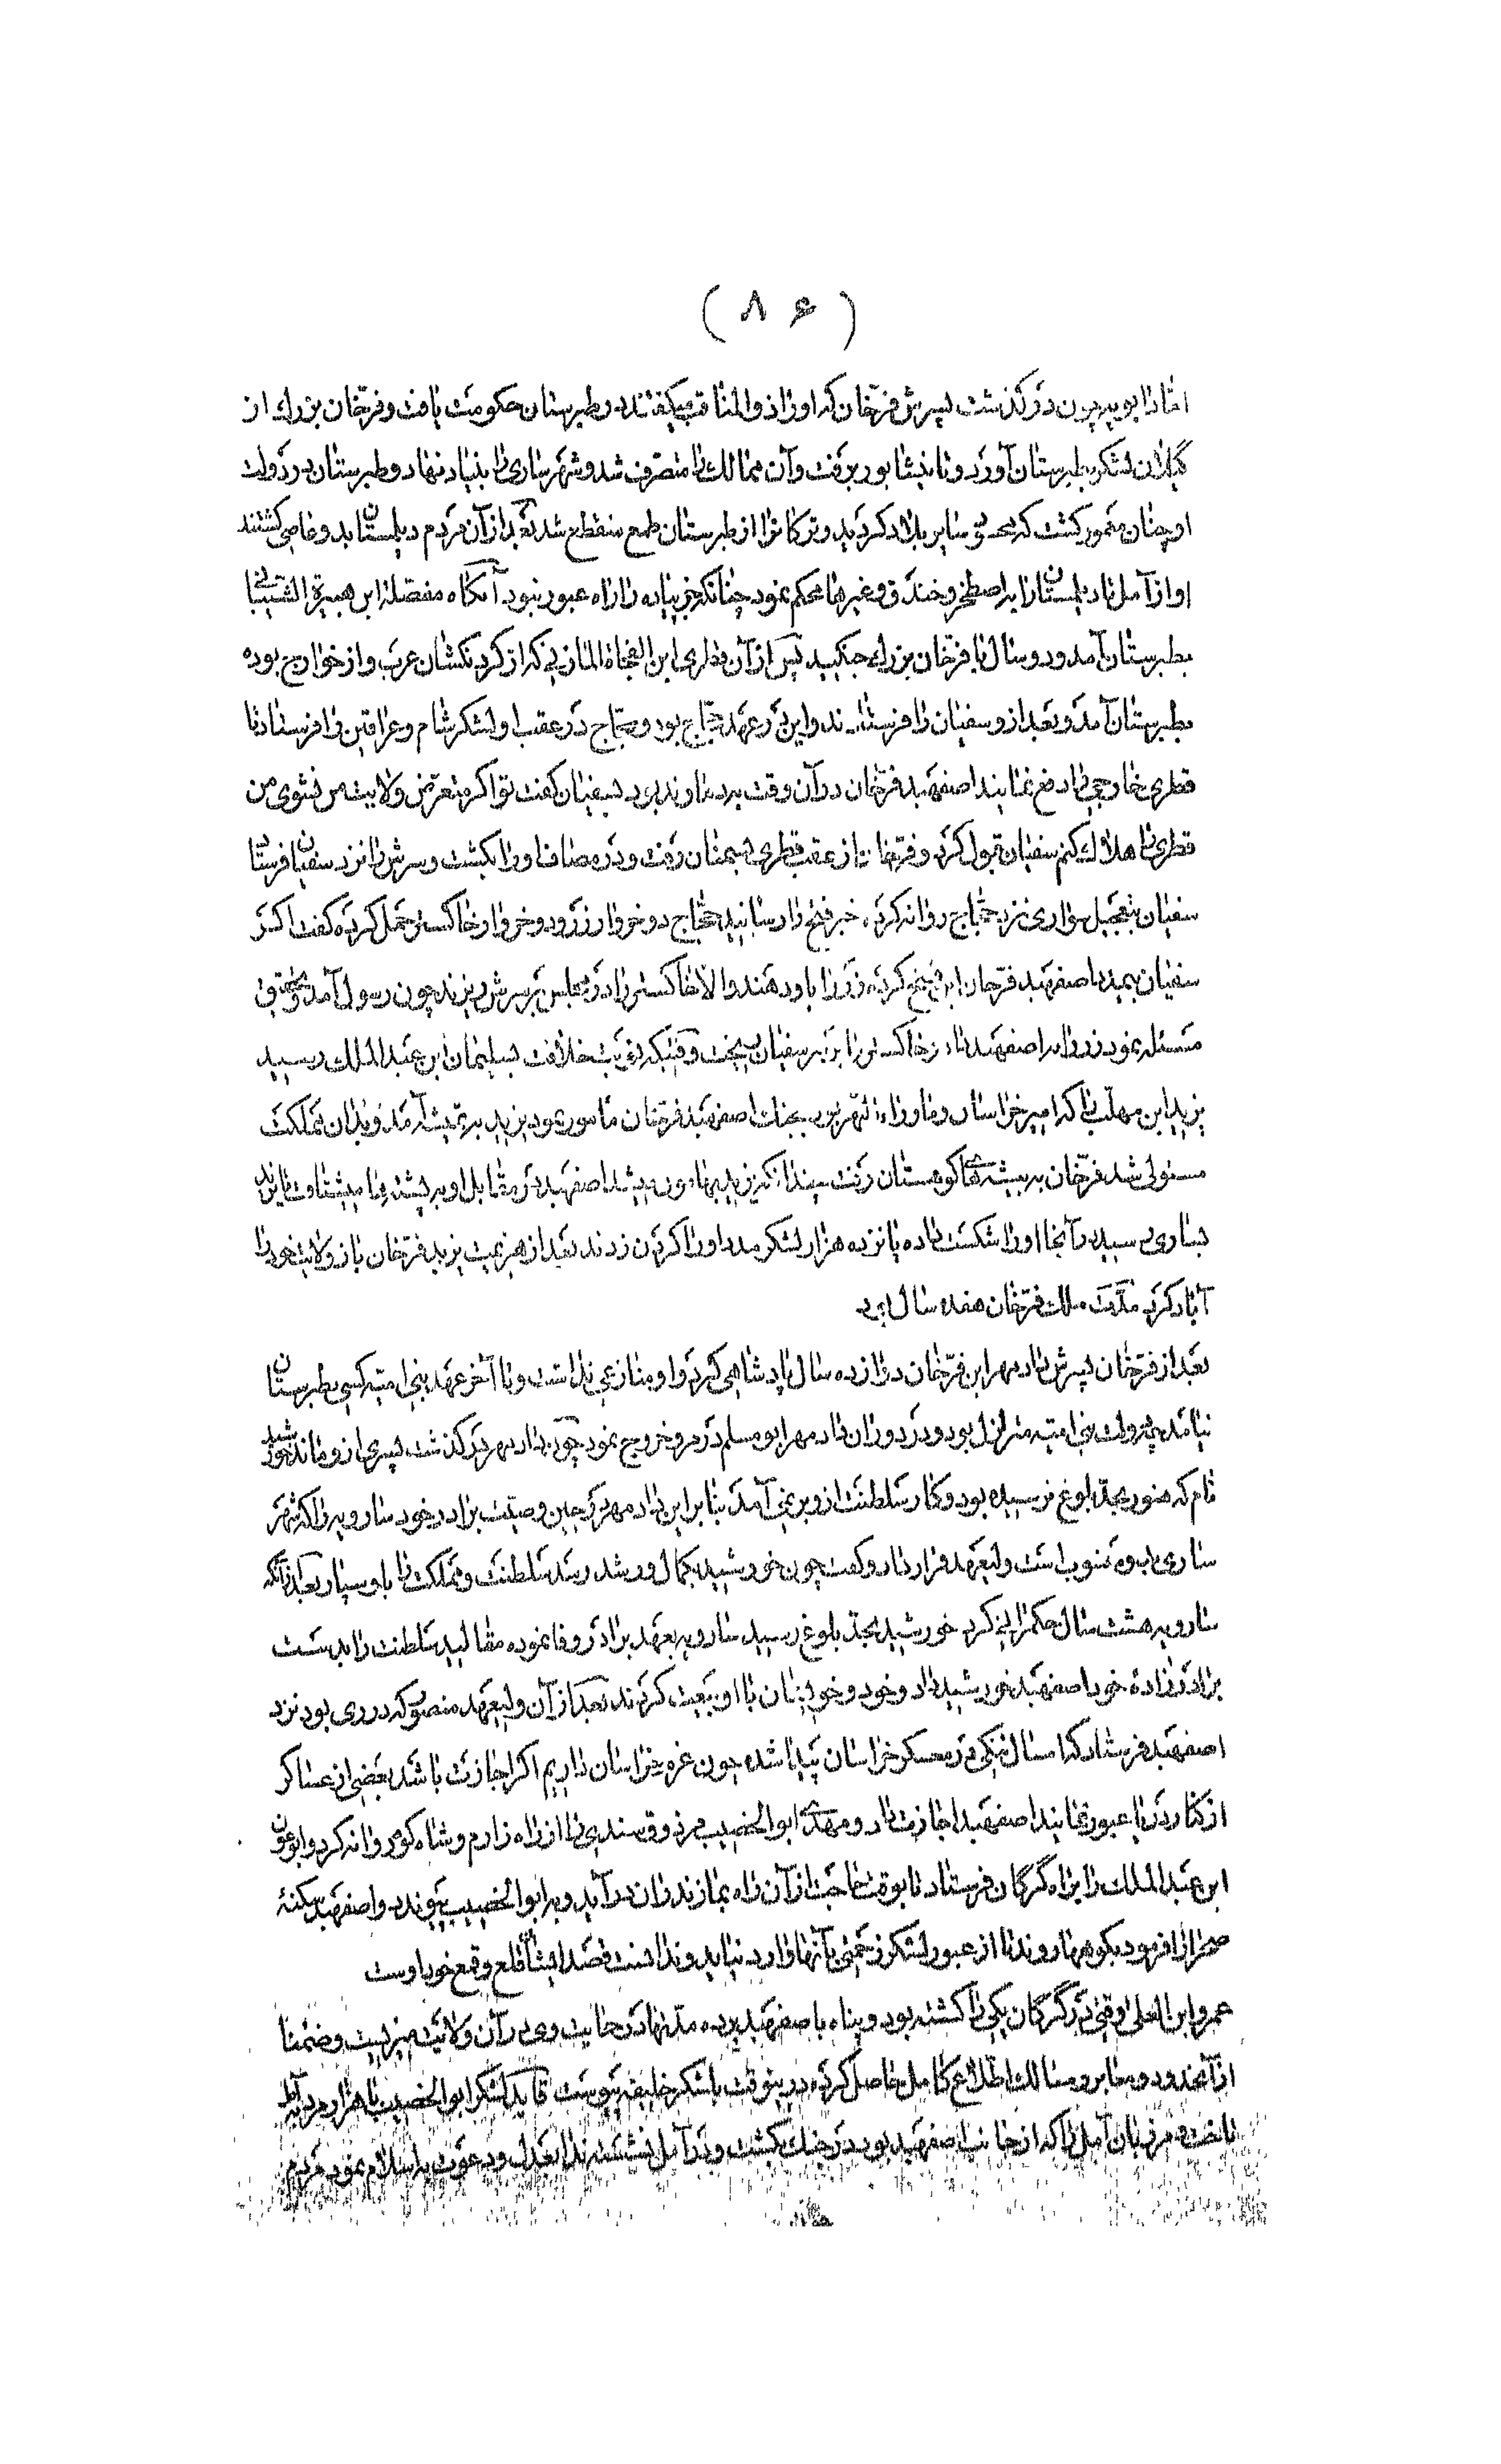 (۸۶)
اما دابویه چون درگذشت پسرش فرخان که او را ذوالمناقب میگفتند در طبرستان حکومت یافت و فرخان بزرک از
گیلان لشکر بطبرستان آورد و تا نیشابور برفت و آن ممالک را متصرف شد و شهر ساری را بنیاد نهاد و طبرستان در دولت
او چنان معمور کشت که سایر بلاد کردید و ترکانرا از طبرستان طمع منقطع شد بعد از آن مردم دیلمستان بد و عاصی کشتند
او از آمل تا دیلمستان را و خندق و غیرها محکم نمود چنانکه جز پیاده را راه عبور نبود آنکاه مصقلة ابن هبیرة الشیبانی
بطبرستان آمد و دو سال با فرخان بزرک جنکید پس از آن قطری ابن الفجاة المازنی که از کردنکشان عرب و از خوارج بوده
بطبرستان آمد و بعد از و سفیان را فرستادند و این در عهد حجاج بود و حجاج در عقب او لشکر شام و عراقین را فرستاد تا
قطری خارجی را دفع نمایند اصفهبد فرخان در آن وقت بدماوند بود بسفیان کفت تو اکر متعرض ولایت من نشوی من
قطری را هلاک کنم سفیان قبول کرد و فرخان از عقب قطری بسمنان رفت و در مصاف او را بکشت و سرش را نزد سفیان فرستاد
سفیان بتعجیل سواری نزد حجاج روانه کرده خبر فتح را رسانید حجاج دو خروار زر و دو خروار خاکستر حمل کرده کفت اکر
سفیان بمدد اصفهبد فرخان این فتح کرده زر را باو دهند والا خاکستر را در مجلس بر سرش ریزند چون رسول آمد و تحقیق
مسئله نمود زر را باصفهبد داد و خاکستر را بر سر سفیان ریخت وقتیکه نوبت خلافت بسلیمان ابن عبدالملک رسید
یزید ابن مهلب را که امیر خراسان و ماوراءالنهر بود بجنک اصفهبد فرخان مامور نمود یزید به تمیشه آمد و بدان مملکت
مستولی شد فرخان به بیشه‌های کوهستان رفت یزید بهامون میشد اصفهبد در مقابل او بر پشته‌ها میشتافت تا یزید
بساری رسید در آنجا او را شکست داده پانزده هزار لشکر مدد او را کردن زدند بعد از هزیمت یزید فرخان باز ولایت خود را
آباد کرد مدت ملک فرخان هفده سال بود
بعد از فرخان پسرش داد مهر ابن فرخان دوازده سال پادشاهی کرد و او منازعی نداشت و تا آخر عهد بنی امیه کسی بطبرستان
نیامد چه دولت بنی امیه متزلزل بود و در دوران داد مهر ابو مسلم در مرو خروج نمود چون داد مهر درکذشت پسری از و ماند خورشید
نام که هنوز بحد بلوغ نرسیده بود و کار سلطنت از و بر نمی آمد بنابراین داد مهر در حین وصیت برادر خود سارویه را که شهر
ساری بدو منسوب است ولیعهد قرار داد و کفت چون خورشید بکمال و رشد رسد سلطنت و مملکت را باو سپار بعد از آنکه
سارویه هشت سال حکمرانی کرد خورشید بحد بلوغ رسید سارویه بعهد برادر وفا نموده مقالید سلطنت را بدست
برادرزاده خود اصفهبد خورشید داد و خود و خویشان با او بیعت کردند بعد از آن ولیعهد منصور که در ری بود نزد
اصفهبد فرستاد که امسال تنکی در معسکر خراسان پیدا شده چون عزم خراسان داریم اکر اجازت باشد بعضی از عساکر
از کنار دریا عبور نمایند اصفهبد اجازت داد و مهدی ابوالخصیب مرزوق سندی را از راه زارم و شاه کوه روانه کرد و ابوعون
ابن عبدالملک را براه گرگان فرستاد تا بوقت حاجت از آن راه بمازندران درآید و به ابوالخصیب پیوندد و اصفهبد سکنۀ
صحرا را فرمود بکوهها روند تا از عبور لشکر زحمتی بآنها وارد نیاید و ندانست قصد ایشان قلع و قمع خود اوست
عمرو ابن العلی وقتی در گرگان یکی را کشته بود و پناه باصفهبد برده مدتها در حمایت وی در آن ولایت میزیست و ضمنا
از آنحدود و معابر و مسالک اطلاع کامل حاصل کرده درینوقت بلشکر خلیفه پیوست قاید لشکر ابوالخصیب با هزار مرد بآمل
تاخت و مرزبان آمل را که از جانب اصفهبد بود در جنک بکشت و در آمل نشسته ندا بعدل و دعوت به اسلام نمود مردم